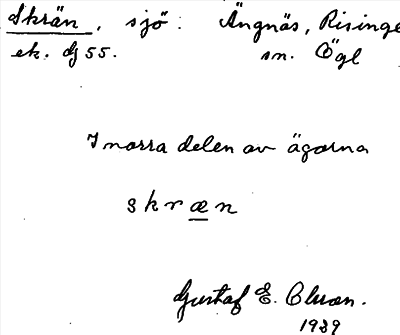 Skrän, sjö: Ängnäs, Risinge
ek. dj 55. sn. Ögl
I norra delen av ägorna
skræn
Gustaf E. Olsson.
1929